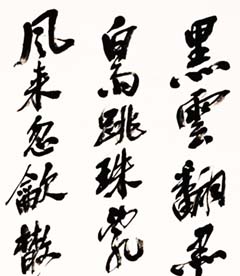 黑雲翻墨
白雨跳珠亂
風来忽龡散